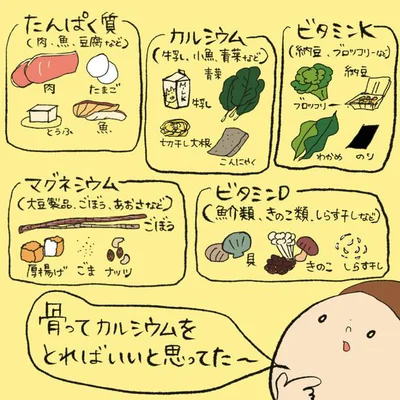 たんぱく質
(肉、魚、豆腐など)
肉
たまご
とうふ
魚
カルシウム
(牛乳、小魚、青菜など)
青菜
MILK
牛乳
切干し大根
こんにゃく
ビタミンK
(納豆、ブロッコリーなど)
納豆
ブロッコリー
わかめ
のり
マグネシウム
(大豆製品、ごぼう、あおさなど)
ごぼう
厚揚げ
ごま
ナッツ
ビタミンD
(魚介類、きのこ類、しらす干しなど)
貝
きのこ
しらす干し
骨ってカルシウムを
とればいいと思ってた〜